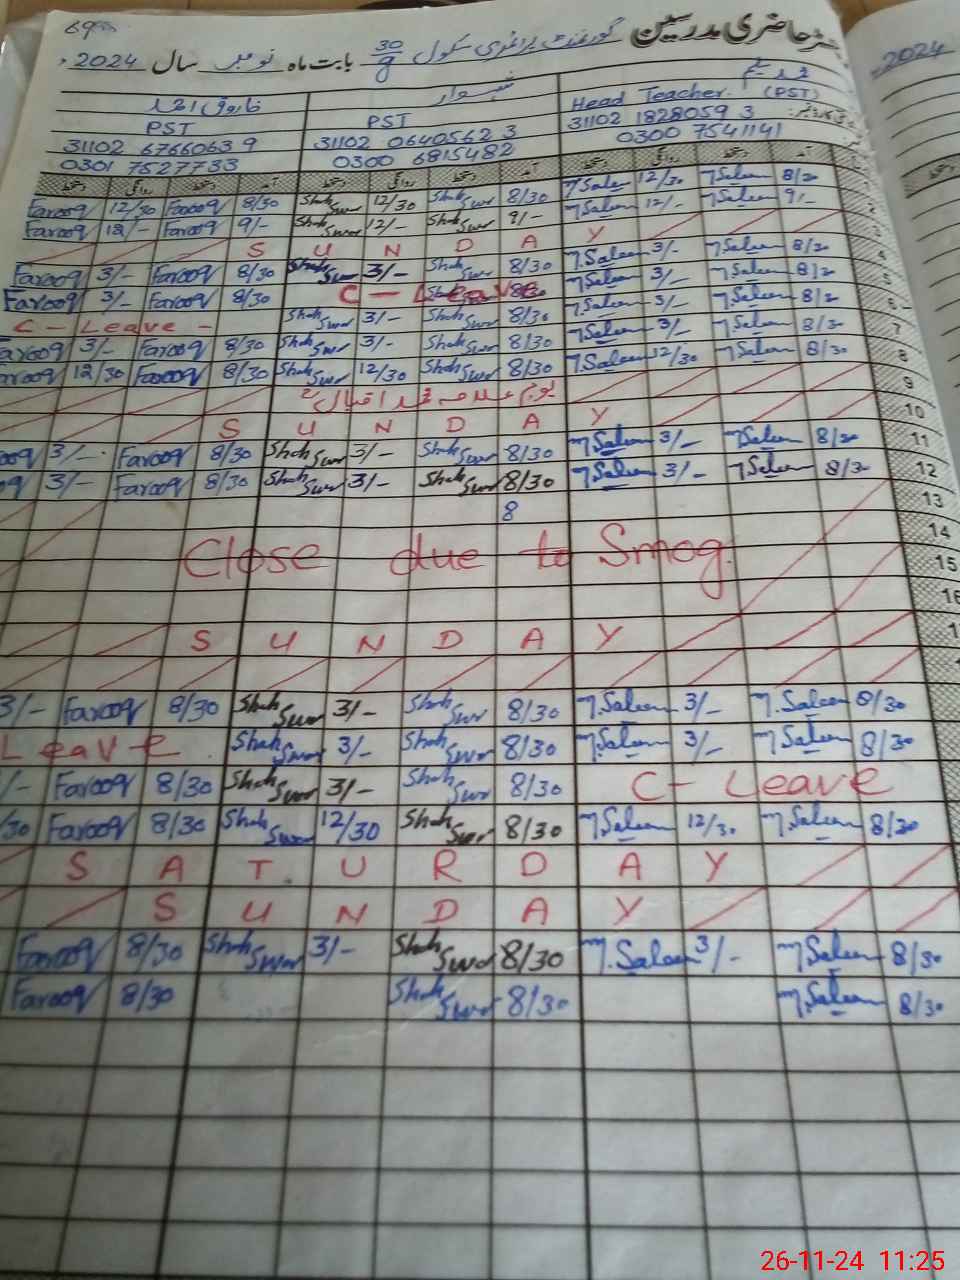 69
رجسٹر حاضری مدرسین گورنمنٹ پرائمری سکول 30/9 بابت ماہ نومبر سال 2024ء
2024
محمد سلیم شہسوار فاروق احمد
Head Teacher. (PST) PST PST
31102 1828059 3 31102 0640562 3 31102 6766063 9
0300 7541141 0300 6815482 0301 7527733
آمد دستخط روانگی دستخط آمد دستخط روانگی دستخط آمد دستخط روانگی دستخط
Farooq 12/30 Farooq 8/30 Shah Swar 12/30 Shah Swar 8/30 M.Saleem 12/30 M.Saleem 8/30 1
Farooq 12/- Farooq 9/- Shah Swar 12/- Shah Swar 9/- M.Saleem 12/- M.Saleem 9/- 2
S U N D A Y 3
Farooq 3/- Farooq 8/30 Shah Swar 3/- Shah Swar 8/30 M.Saleem 3/- M.Saleem 8/30 4
Farooq 3/- Farooq 8/30 C - Leave M.Saleem 3/- M.Saleem 8/30 5
C - Leave - Shah Swar 3/- Shah Swar 8/30 M.Saleem 3/- M.Saleem 8/30 6
arooq 3/- Farooq 8/30 Shah Swar 3/- Shah Swar 8/30 M.Saleem 3/- M.Saleem 8/30 7
arooq 12/30 Farooq 8/30 Shah Swar 12/30 Shah Swar 8/30 M.Saleem 12/30 M.Saleem 8/30 8
یوم علامہ محمد اقبال 9
S U N D A Y 10
ooq 3/- Farooq 8/30 Shah Swar 3/- Shah Swar 8/30 M.Saleem 3/- M.Saleem 8/30 11
oq 3/- Farooq 8/30 Shah Swar 3/- Shah Swar 8/30 M.Saleem 3/- M.Saleem 8/30 12
8 13
14
Close due to Smog. 15
16
S U N D A Y
3/- Farooq 8/30 Shah Swar 3/- Shah Swar 8/30 M.Saleem 3/- M.Saleem 8/30
Leave Shah Swar 3/- Shah Swar 8/30 M.Saleem 3/- M.Saleem 8/30
/- Farooq 8/30 Shah Swar 3/- Shah Swar 8/30 C- Leave
/30 Farooq 8/30 Shah Swar 12/30 Shah Swar 8/30 M.Saleem 12/30 M.Saleem 8/30
S A T U R D A Y
S U N D A Y
Farooq 8/30 Shah Swar 3/- Shah Swar 8/30 M.Saleem 3/- M.Saleem 8/30
Farooq 8/30 Shah Swar 8/30 M.Saleem 8/30
26-11-24 11:25